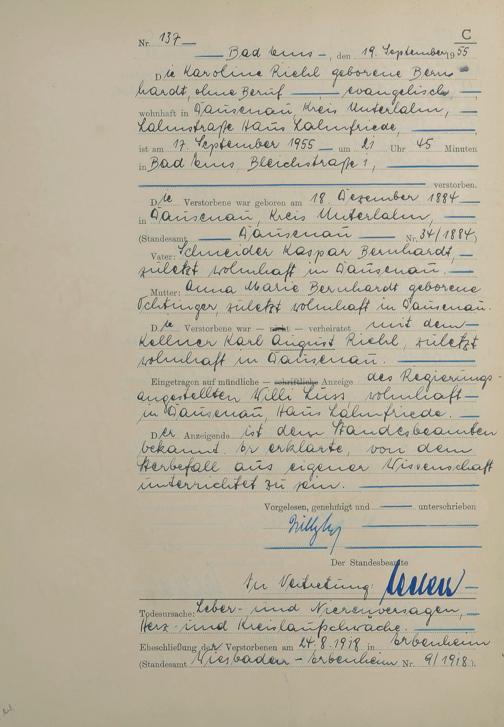 C
Nr. 137
Bad Ems, den 19. September 1955
Die Karoline Riehl geborene Bern-
hardt, ohne Beruf evangelisch
wohnhaft in Dausenau Kreis Unterlahn,
Lahnstraße Haus Lahnfriede,
ist am 17. September 1955 um 21 Uhr 45 Minuten
in Bad Ems, Bleichstraße 1,
verstorben.
Die Verstorbene war geboren am 18. Dezember 1884
in Dausenau, Kreis Unterlahn,
(Standesamt Dausenau Nr. 34/1884)
Vater: Schneider Kaspar Bernhardt,
zuletzt wohnhaft in Dausenau.
Mutter: Anna Marie Bernhardt geborene
zuletzt wohnhaft in Dausenau.
Die Verstorbene war — nicht — verheiratet mit dem
Kellner Karl August Riehl, zuletzt
wohnhaft in Dausenau.
Eingetragen auf mündliche — schriftliche Anzeige des Regierungs-
angestellten Willi Luss wohnhaft
in Dausenau, Haus Lahnfriede.
Der Anzeigende ist dem Standesbeamten
bekannt. Er erklärte, von dem
Sterbefall aus eigener Wissenschaft
unterrichtet zu sein.
Vorgelesen, genehmigt und unterschrieben
Der Standesbeamte
In Vertretung:
Todesursache: Leber- und Nierenversagen,
Herz- und Kreislaufschwäche.
Eheschließung der Verstorbenen am 24.8.1918 in Erbenheim
(Standesamt Wiesbaden-Erbenheim Nr. 9/1918).